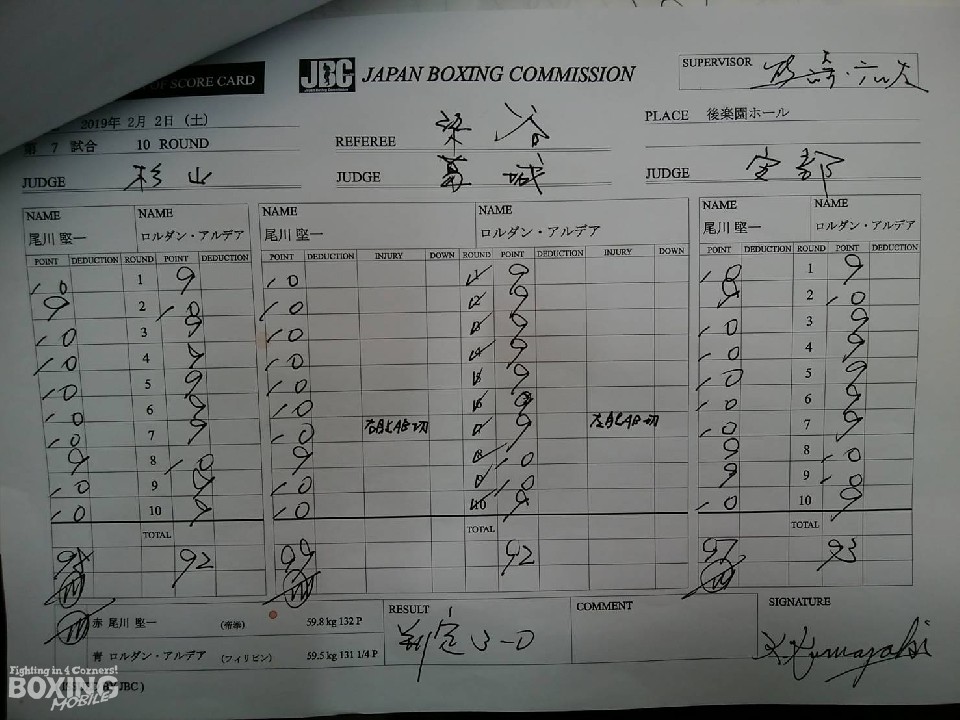 OF SCORE CARD
JBC JAPAN BOXING COMMISSION
SUPERVISOR
2019年 2月 2日 (土)
第 7 試合 10 ROUND
REFEREE 染谷
PLACE 後楽園ホール
JUDGE 杉山
JUDGE 葛城
JUDGE 安部
NAME NAME NAME NAME NAME NAME
尾川 堅一 ロルダン・アルデア 尾川 堅一 ロルダン・アルデア 尾川 堅一 ロルダン・アルデア
POINT DEDUCTION ROUND POINT DEDUCTION POINT DEDUCTION INJURY DOWN ROUND POINT DEDUCTION INJURY DOWN POINT DEDUCTION ROUND POINT DEDUCTION
10 1 9 10 1 9 10 1 9
9 2 10 10 2 9 9 2 10
10 3 9 10 3 9 10 3 9
10 4 9 10 4 9 10 4 9
10 5 9 10 5 9 10 5 9
10 6 9 10 6 9 10 6 9
10 7 9 10 7 9 10 7 9
9 8 10 9 8 10 9 8 10
10 9 9 10 9 10 9 9 10
10 10 9 10 10 9 10 10 9
TOTAL TOTAL TOTAL
98 92 99 92 97 93
赤 尾川 堅一 (帝拳) 59.8 kg 132 P
青 ロルダン・アルデア (フィリピン) 59.5 kg 131 1/4 P
RESULT
判定 3-0
COMMENT
SIGNATURE
BY JBC )
Fighting in 4 Corners!
BOXING
MOBILE